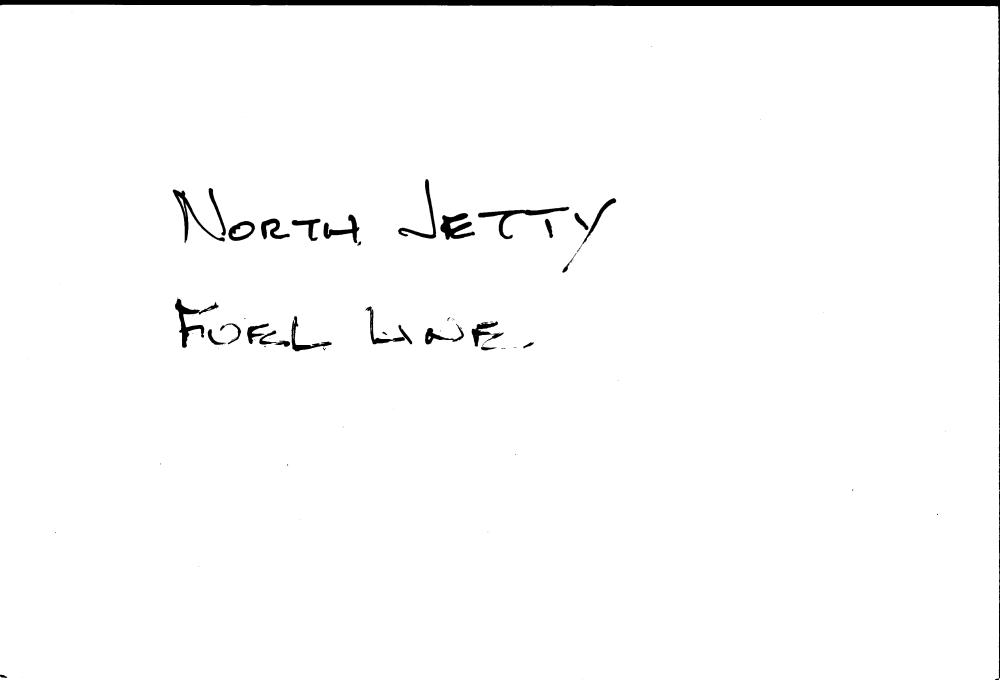 NORTH JETTY
FUEL LINE.